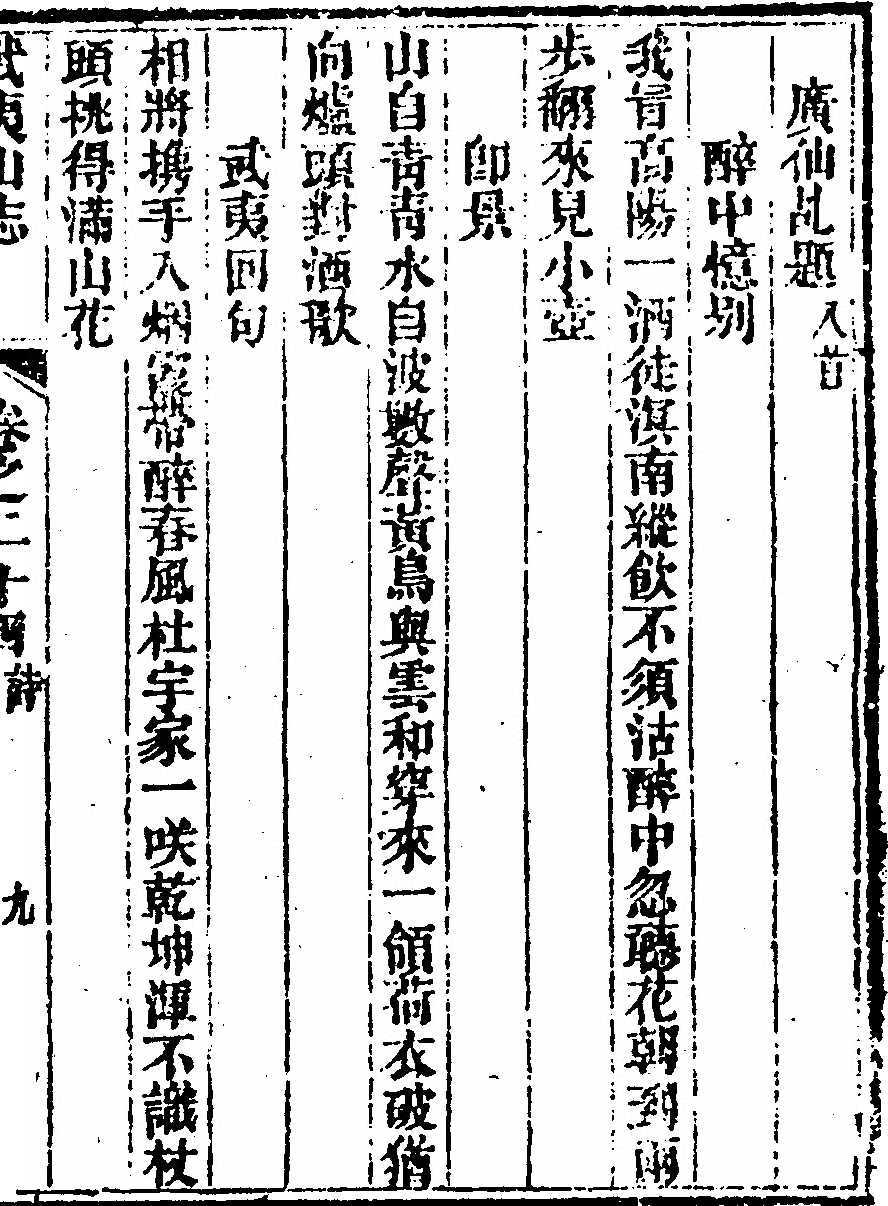 廣仙乩題八首
醉中憶別
我昔高陽一酒徒滇南縱飲不須沽醉中忽聽花朝到兩
步翻來見小壺
即景
山自青青水自波數聲黃鳥與雲和穿來一領荷衣破猶
向爐頭對酒歌
武夷回句
相將携手入烟霞帶醉春風杜宇家一咲乾坤渾不識杖
頭挑得滿山花
武夷山志
卷之二十四 詩
九